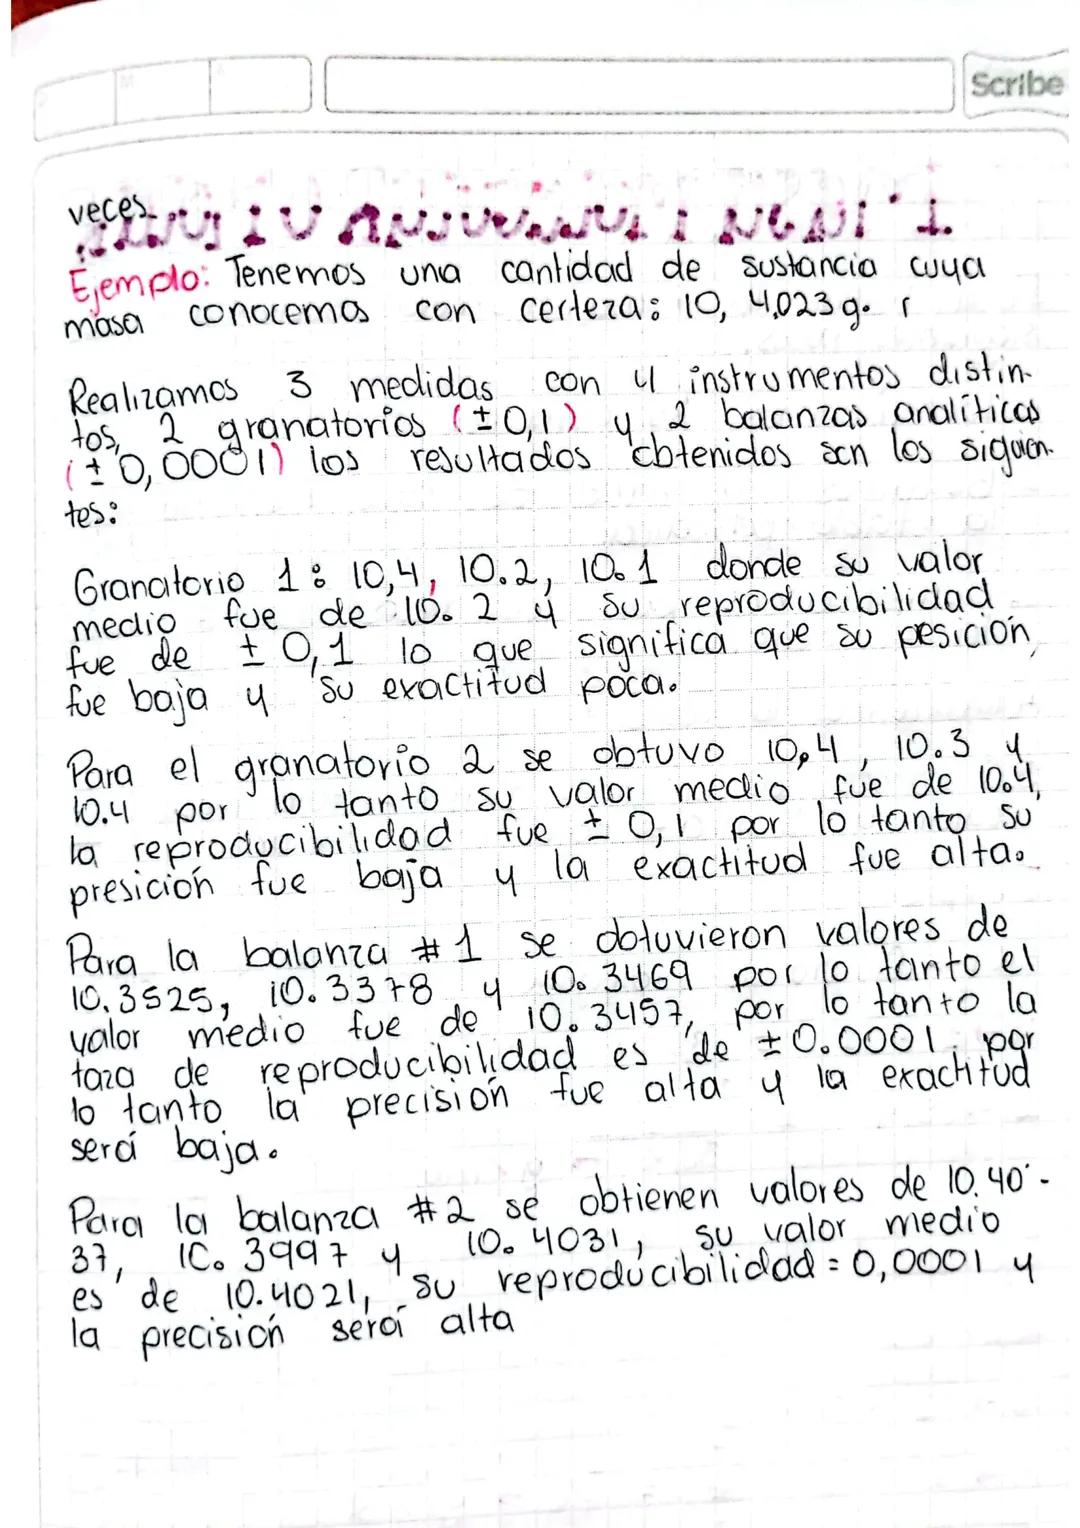 Scribe
veces
Ejemplo: Tenemos una cantidad de sustancia cuya
masa conocemos con certeza: 10, 4,023 g.
Realizamos 3 medidas con 4 instrumentos distin-
tos, 2 granatorios (±0,1) y 2 balanzas analíticas
(±0,0001) los resultados obtenidos son los siguien-
tes:
Granatorio 1: 10,4, 10.2, 10.1 donde su valor
medio fue de 10.2 y su reproducibilidad
fue de ±0,1 lo que significa que su pesición
fue baja y su exactitud poca.
Para el granatorio 2 se obtuvo 10,4, 10.3 y
10.4 por lo tanto su valor medio fue de 10.4,
la reproducibilidad fue ±0,1 por lo tanto su
presición fue baja y la exactitud fue alta.
Para la balanza #1 se obtuvieron valores de
10.3525, 10.3378 y 10.3469 por lo tanto el
valor medio fue de 10.3457, por lo tanto la
taza de reproducibilidad es de ±0.0001. por
lo tanto la precisión fue alta y la exactitud
será baja.
Para la balanza #2 se obtienen valores de 10.40-
37, 10.3997 y 10.4031, su valor medio
es de 10.4021, su reproducibilidad = 0,0001 y
la precisión será alta